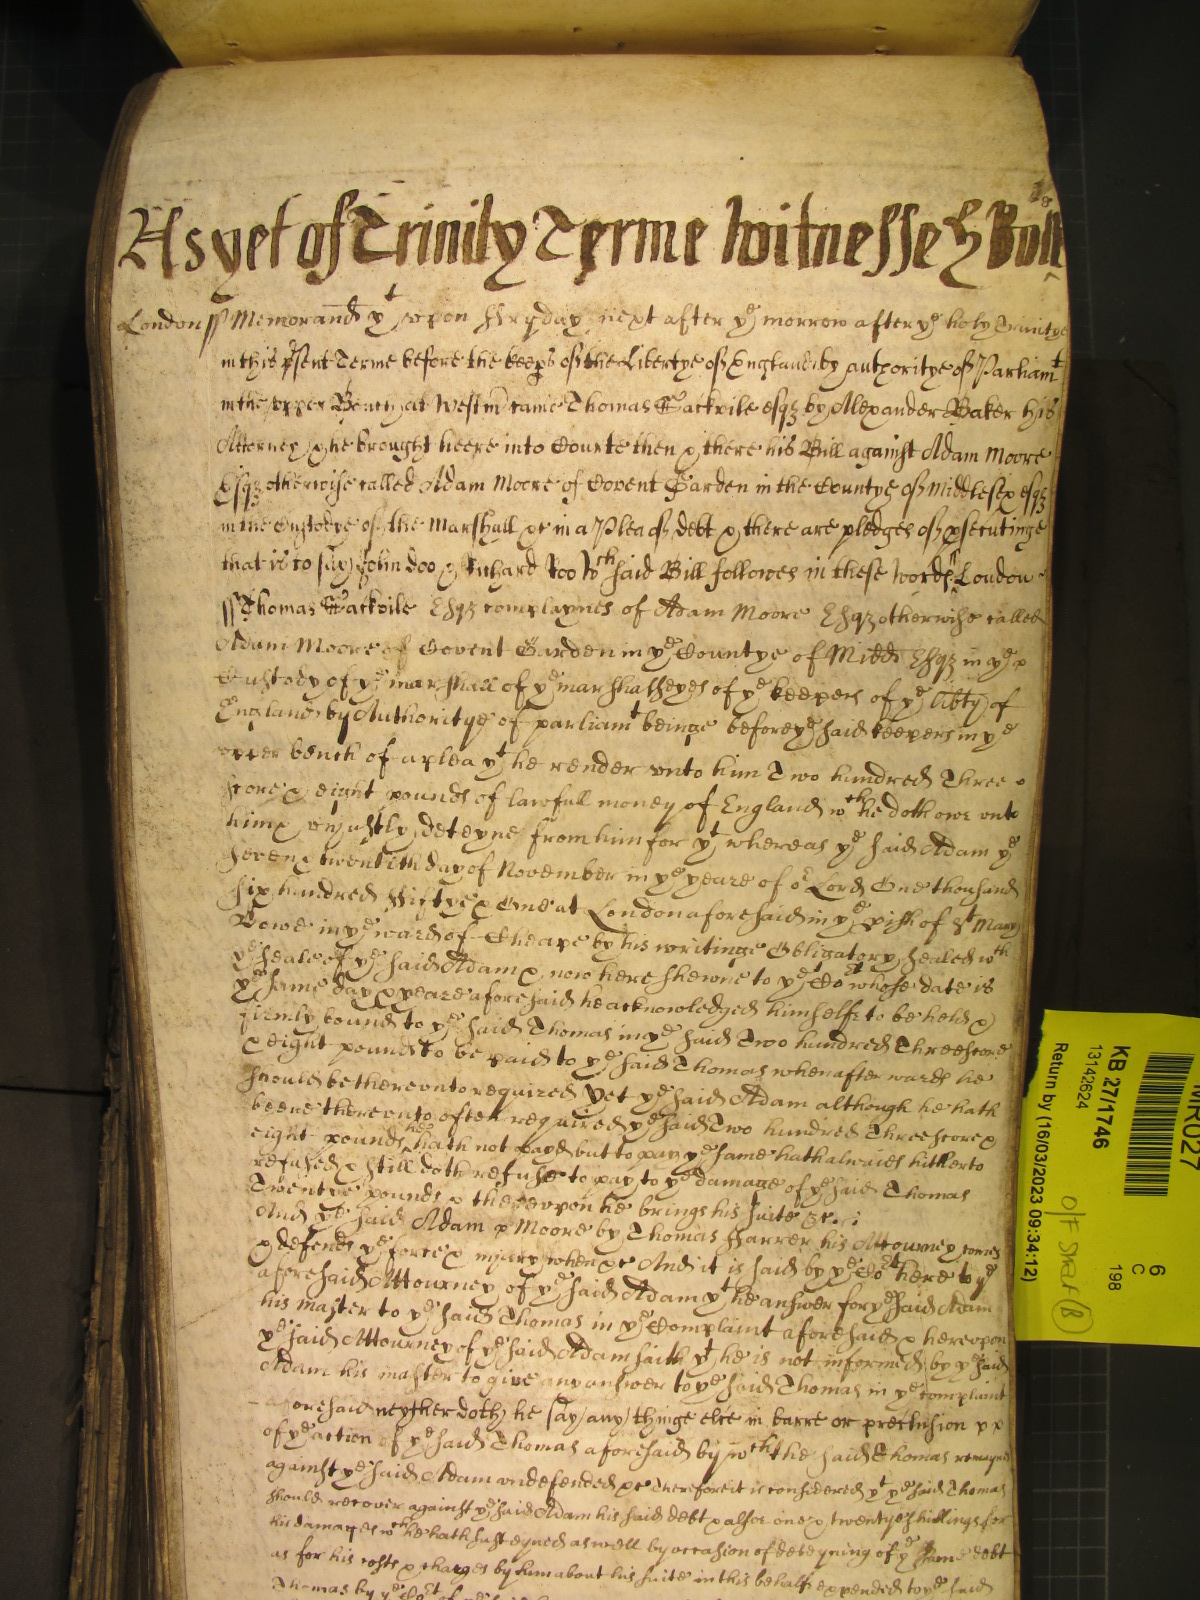 As yet of Trinity Terme Witnesseth Roll
London ss Memorand yt upon Fryday next after ye morrow after ye holy Trinitye
in this psent Terme before the keeps of the Libertye of England by authoritye of Parliamt
in the upper Bench at Westm came Thomas Sackvile esqz by Alexander Baker his
Attorney & he brought heere into Courte then & there his Bill against Adam Moore
Esqz otherwise called Adam Moore of Covent Garden in the Countye of Middlesex esqz
in the Custodye of the Marshall &c in a Plea of debt & there are pledges of psecutinge
that is to say John Doo & Richard Roo Wch said Bill followes in these words ss London
ss Thomas Sackvile Esqz complaynes of Adam Moore Esqz otherwise called
Adam Moore of Covent Garden in ye Countye of Midd Esqz in ye
Custody of ye marshall of ye marshalseyes of ye keepers of ye libty of
England by Authoritye of parliamt beinge before ye said keepers in ye
upper bench of a plea yt he render unto him Two hundred Three
score & eight pounds of lawfull money of England wch he doth owe unto
him & unjustly deteyne from him for yt whereas ye said Adam ye
seven & twentith day of November in ye yeare of or Lord One thousand
six hundred Fiftye & One at London aforesaid in ye pish of St Mary
Bowe in ye ward of Cheape by his writinge Obligatory sealed wth
ye seale of ye said Adam & now here shewne to ye Cort whose date is
ye same day & yeare aforesaid he acknowledged himselfe to be held &
firmly bound to ye said Thomas in ye said Two hundred Threescore
& eight pounds to be paid to ye said Thomas when afterwards he
should be thereonto required Yet ye said Adam although he hath
beene thereunto often required ye said Two hundred Threescore &
eight pounds he hath not payd but to pay ye same hath alwaies hitherto
refused & still doth refuse to pay to ye damage of ye said Thomas
Twentye pounds & thereupon he brings his suite &c
And ye said Adam Moore by Thomas Farrer his Attourney comes
& defends ye force & injury when &c And it is said by ye Cort here to ye
aforesaid Attourney of ye said Adam yt he answer for ye said Adam
his master to ye said Thomas in ye Complaint aforesaid & hereupon
ye said Attourney of ye said Adam saith yt he is not informed by ye said
Adam his master to give any answer to ye said Thomas in ye complaint
aforesaid neyther doth he say any thinge else in barre or preclusion
of ye action of ye said Thomas aforesaid by wch the said Thomas remaynes
against ye said Adam undefended &c Therefore it is considered yt ye said Thomas
should recover against ye said Adam his said debt & alsoe one & twenty shillings for
his damages wch he hath susteyned as well by occasion of deteyning of ye same debt
as for his costs & charges by him about his suite in this behalfe expended to ye said
Thomas by ye Cort of
MR027
KB 27/1746
13142624
Return by (16/03/2023 09:34:12)
6
C
198